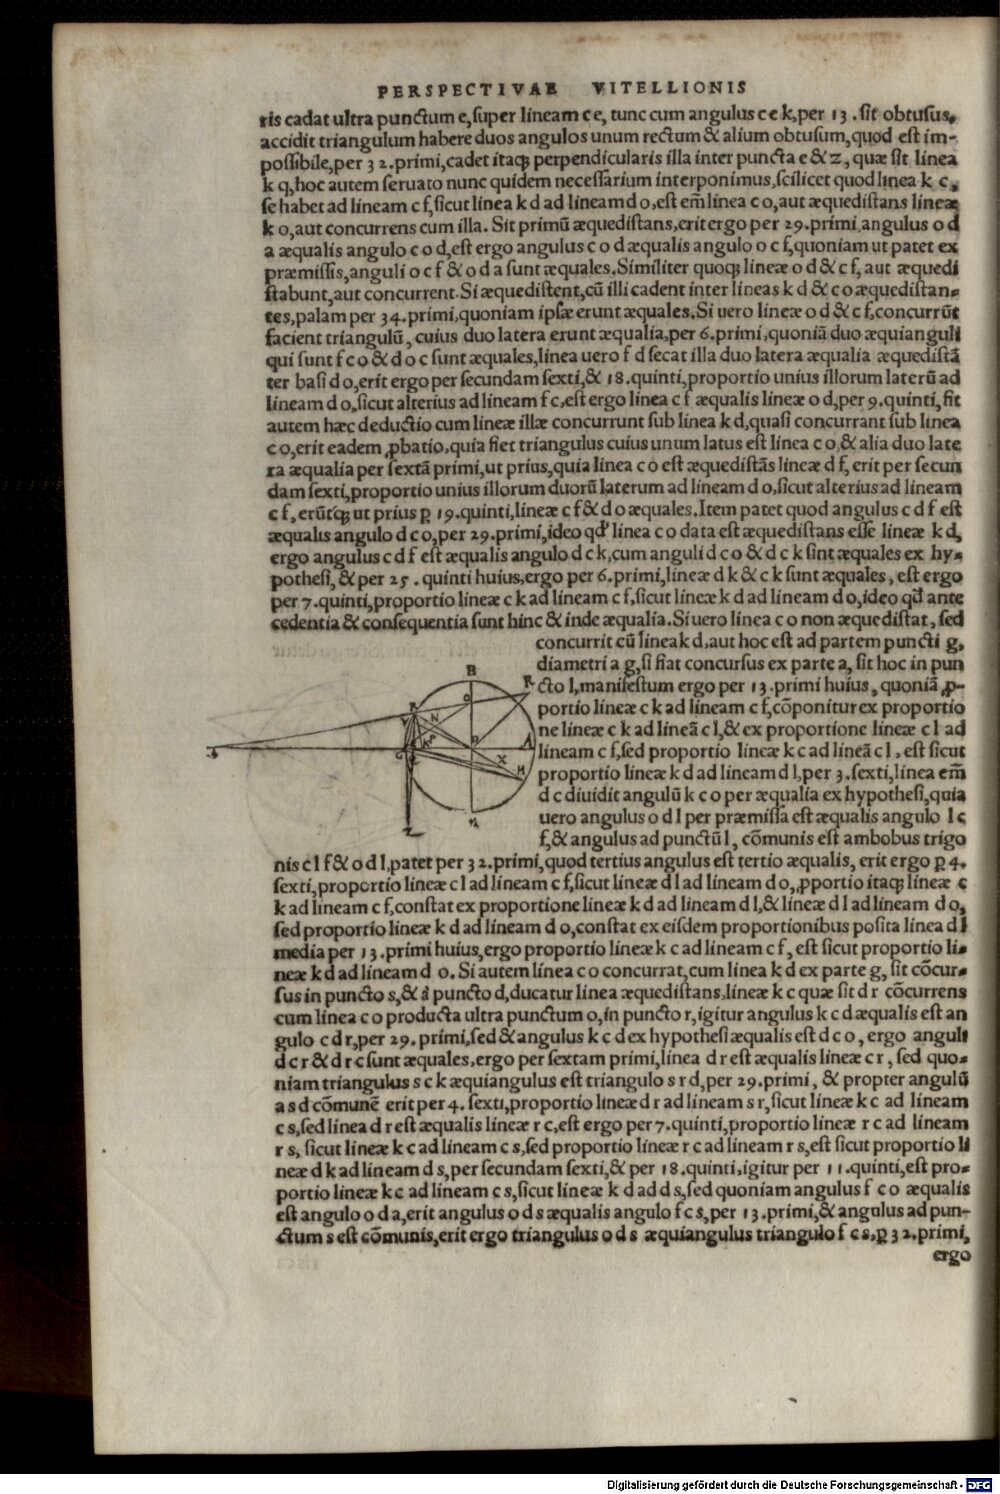 PERSPECTIVAE VITELLIONIS
tis cadat ultra punctum e, super lineam c e, tunc cum angulus c e k, per 13. sit obtusus,
accidit triangulum habere duos angulos unum rectum & alium obtusum, quod est im-
possibile, per 32. primi, cadet itaqꝫ perpendicularis illa inter puncta e & z, quæ sit linea
k q, hoc autem seruato nunc quidem necessarium interponimus, scilicet quod linea k c,
se habet ad lineam c f, sicut linea k d ad lineam d o, est em̄ linea c o, aut æquedistans lineæ
k o, aut concurrens cum illa. Sit primū æquedistans, erit ergo per 29. primi, angulus o d
a æqualis angulo c o d, est ergo angulus c o d æqualis angulo o c f, quoniam ut patet ex
præmissis, anguli o c f & o d a sunt æquales. Similiter quoqꝫ lineæ o d & c f, aut æquedi
stabunt, aut concurrent. Si æquedistent, cū illi cadent inter lineas k d & c o æquedistan-
tes, palam per 34. primi, quoniam ipsæ erunt æquales. Si uero lineæ o d & c f, concurrūt
facient triangulū, cuius duo latera erunt æqualia, per 6. primi, quoniā duo æquianguli
qui sunt f c o & d o c sunt æquales, linea uero f d secat illa duo latera æqualia æquedistā
ter basi d o, erit ergo per secundam sexti, & 18. quinti, proportio unius illorum laterū ad
lineam d o, sicut alterius ad lineam f c, est ergo linea c f æqualis lineæ o d, per 9. quinti, fit
autem hæc deductio cum lineæ illæ concurrunt sub linea k d, quasi concurrant sub linea
c o, erit eadem ꝓbatio, quia fiet triangulus cuius unum latus est linea c o, & alia duo late
ra æqualia per sextā primi, ut prius, quia linea c o est æquedistās lineæ d f, erit per secun
dam sexti, proportio unius illorum duorū laterum ad lineam d o, sicut alterius ad lineam
c f, erūtqꝫ ut prius ꝑ 19. quinti, lineæ c f & d o æquales. Item patet quod angulus c d f est
æqualis angulo d c o, per 29. primi, ideo qd' linea c o data est æquedistans esse lineæ k d,
ergo angulus c d f est æqualis angulo d c k, cum anguli d c o & d c k sint æquales ex hy-
pothesi, & per 25. quinti huius, ergo per 6. primi, lineæ d k & c k sunt æquales, est ergo
per 7. quinti, proportio lineæ c k ad lineam c f, sicut lineæ k d ad lineam d o, ideo qd' ante
cedentia & consequentia sunt hinc & inde æqualia. Si uero linea c o non æquedistat, sed
concurrit cū linea k d, aut hoc est ad partem puncti g,
diametri a g, si fiat concursus ex parte a, sit hoc in pun
cto l, manifestum ergo per 13. primi huius, quoniā ꝓ-
portio lineæ c k ad lineam c f, cōponitur ex proportio
ne lineæ c k ad lineā c l, & ex proportione lineæ c l ad
lineam c f, sed proportio lineæ k c ad lineā c l, est sicut
proportio lineæ k d ad lineam d l, per 3. sexti, linea em̄
d c diuidit angulū k c o per æqualia ex hypothesi, quia
uero angulus o d l per præmissa est æqualis angulo l c
f, & angulus ad punctū l, cōmunis est ambobus trigo
B
R
A
H
X
D
N
Z
nis c l f & o d l, patet per 32. primi, quod tertius angulus est tertio æqualis, erit ergo ꝑ 4.
sexti, proportio lineæ c l ad lineam c f, sicut lineæ d l ad lineam d o, ꝓportio itaqꝫ lineæ c
k ad lineam c f, constat ex proportione lineæ k d ad lineam d l, & lineæ d l ad lineam d o,
sed proportio lineæ k d ad lineam d o, constat ex eisdem proportionibus posita linea d l
media per 13. primi huius, ergo proportio lineæ k c ad lineam c f, est sicut proportio li-
neæ k d ad lineam d o. Si autem linea c o concurrat, cum linea k d ex parte g, sit cōcur-
sus in puncto s, & à puncto d, ducatur linea æquedistans, lineæ k c quæ sit d r cōcurrens
cum linea c o producta ultra punctum o, in puncto r, igitur angulus k c d æqualis est an
gulo c d r, per 29. primi, sed & angulus k c d ex hypothesi æqualis est d c o, ergo anguli
d c r & d r c sunt æquales, ergo per sextam primi, linea d r est æqualis lineæ c r, sed quo-
niam triangulus s c k æquiangulus est triangulo s r d, per 29. primi, & propter angulū
a s d cōmunē erit per 4. sexti, proportio lineæ d r ad lineam s r, sicut lineæ k c ad lineam
c s, sed linea d r est æqualis lineæ r c, est ergo per 7. quinti, proportio lineæ r c ad lineam
r s, sicut lineæ k c ad lineam c s, sed proportio lineæ r c ad lineam r s, est sicut proportio li
neæ d k ad lineam d s, per secundam sexti, & per 18. quinti, igitur per 11. quinti, est pro-
portio lineæ k c ad lineam c s, sicut lineæ k d ad d s, sed quoniam angulus f c o æqualis
est angulo o d a, erit angulus o d s æqualis angulo f c s, per 13. primi, & angulus ad pun-
ctum s est cōmunis, erit ergo triangulus o d s æquiangulus triangulo f c s, ꝑ 32. primi,
ergo
Digitalisierung gefördert durch die Deutsche Forschungsgemeinschaft - DFG